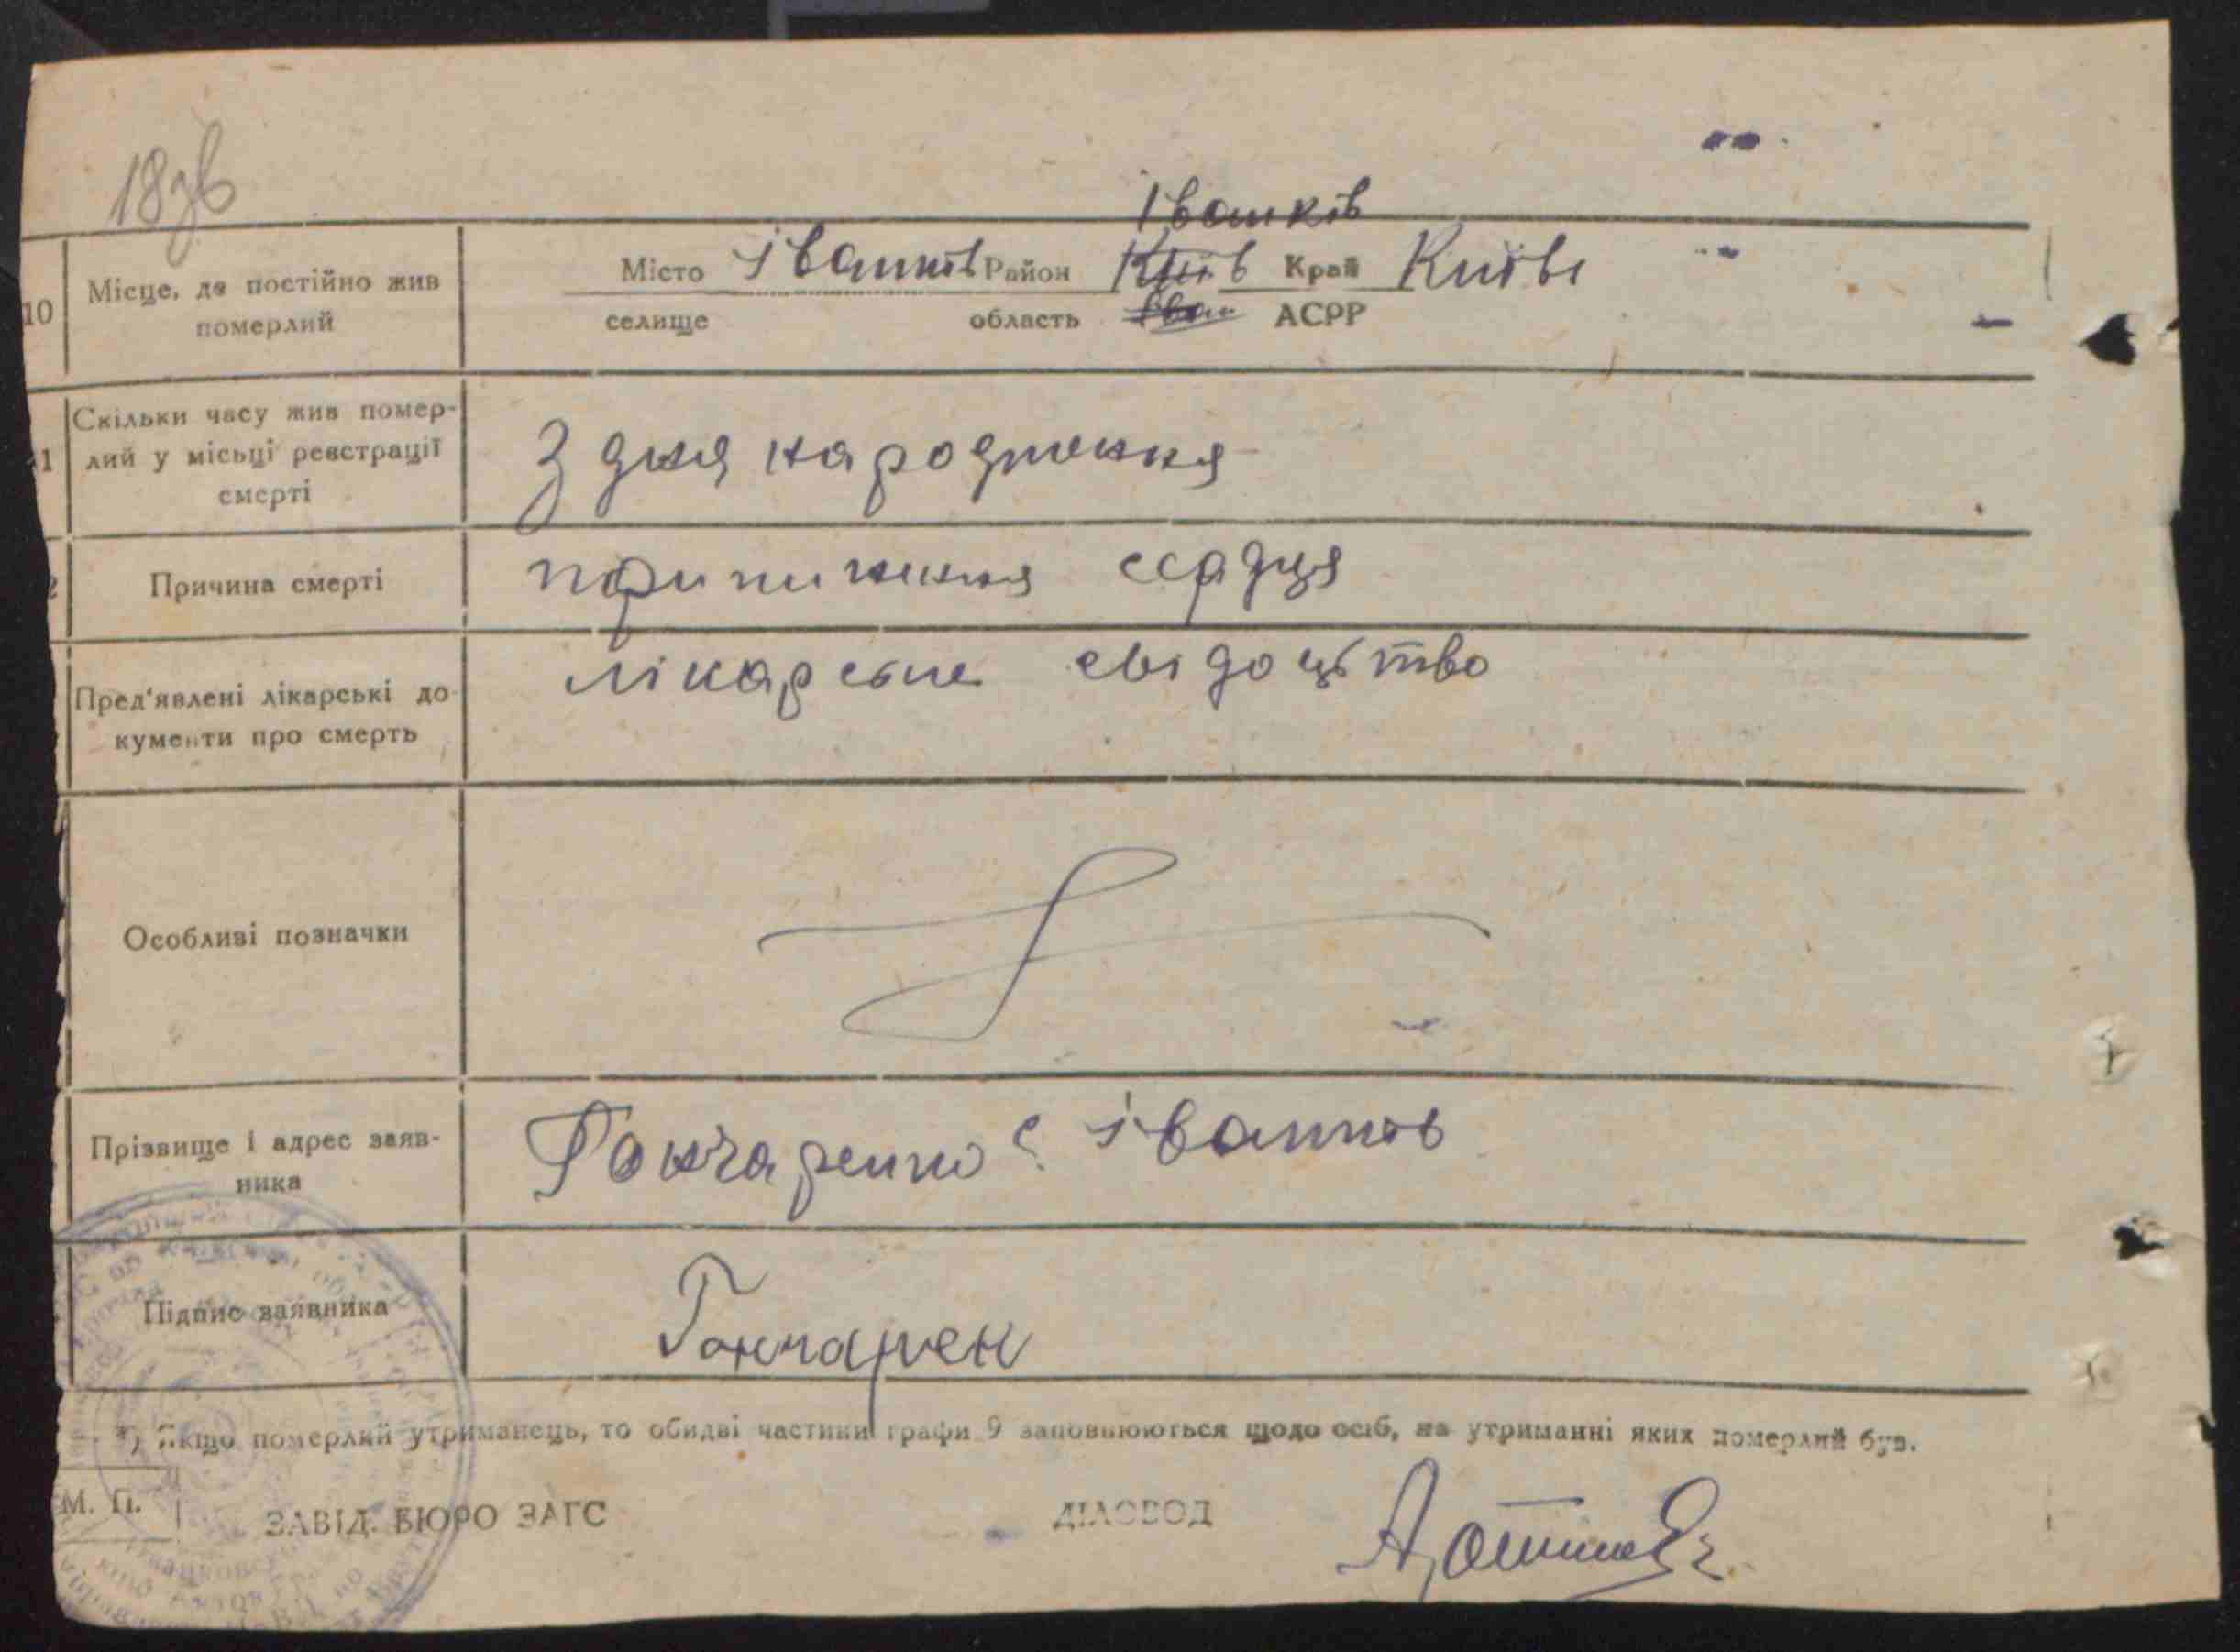 18зв
Іванків
10 Місце, де постійно жив померлий
Місто Іванків Район Київ Край Київс
селище область АСРР
Скільки часу жив помер-
1 лий у місьці реєстрації
смерті
З дня народження
Причина смерті припинення серця
лікарське свідоцьтво
Пред'явлені лікарські до-
кументи про смерть
Особливі позначки
Прізвище і адрес заяв-
ника
Гончаренко с. Іванків
Підпис заявника Гончарен
*) Якщо померлий утриманець, то обидві частини графи 9 заповнюються щодо осіб, на утриманні яких померлий був.
М. П. ЗАВІД. БЮРО ЗАГС ДІЛОВОД